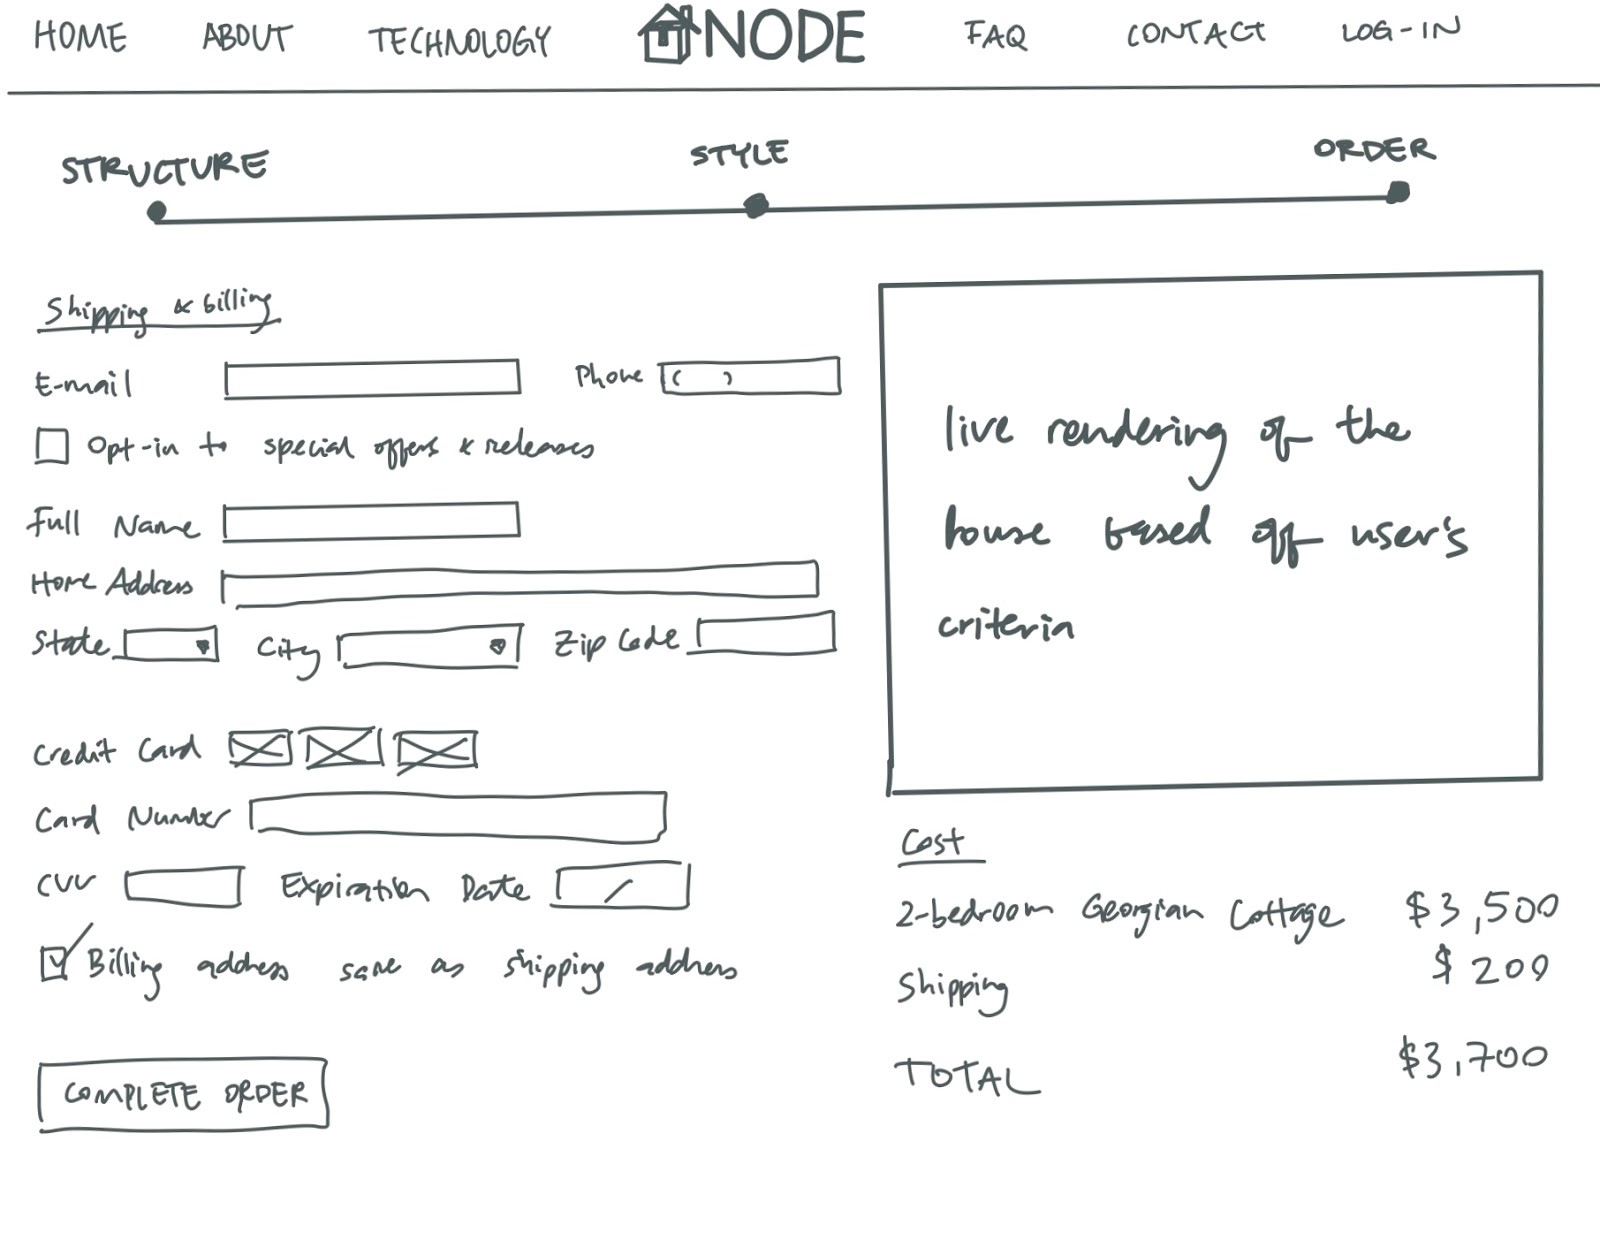 HOME ABOUT TECHNOLOGY NODE FAQ CONTACT LOG-IN
STRUCTURE STYLE ORDER
Shipping & billing
E-mail Phone ( )
Opt-in to special offers & releases
Full Name
Home Address
State City Zip Code
Credit Card
Card Number
CVV Expiration Date /
Billing address same as shipping address
COMPLETE ORDER
live rendering of the
house based off user's
criteria
Cost
2-bedroom Georgian Cottage $3,500
Shipping $200
TOTAL $3,700